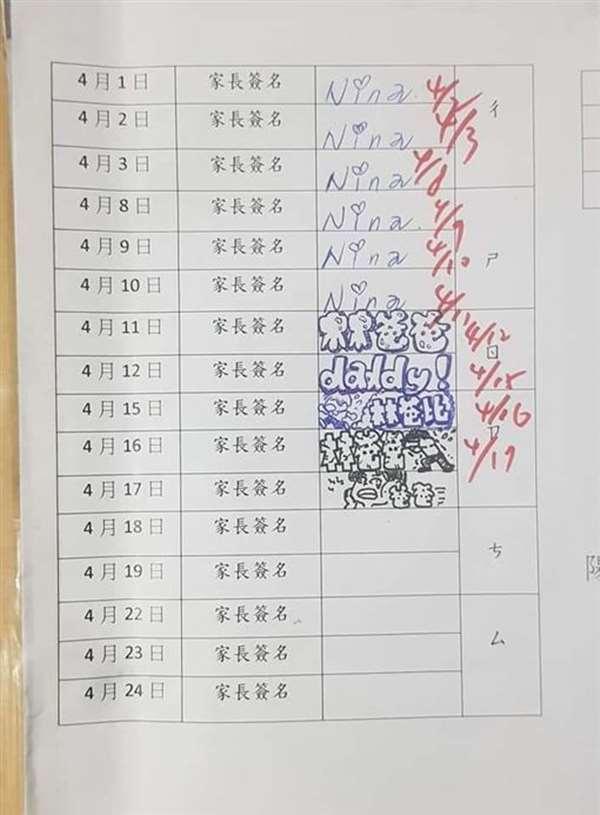 4月1日 家長簽名 Nina 4/2 ㄔ
4月2日 家長簽名 Nina 4/3
4月3日 家長簽名 Nina 4/8
4月8日 家長簽名 Nina 4/9 ㄕ
4月9日 家長簽名 Nina 4/10
4月10日 家長簽名 Nina 4/11
4月11日 家長簽名 爸爸 4/12 ㄖ
4月12日 家長簽名 daddy! 4/15
4月15日 家長簽名 林爸比 4/16 ㄗ
4月16日 家長簽名 林爸爸 4/17
4月17日 家長簽名 爸爸
4月18日 家長簽名 ㄘ
4月19日 家長簽名
4月22日 家長簽名 ㄙ
4月23日 家長簽名
4月24日 家長簽名